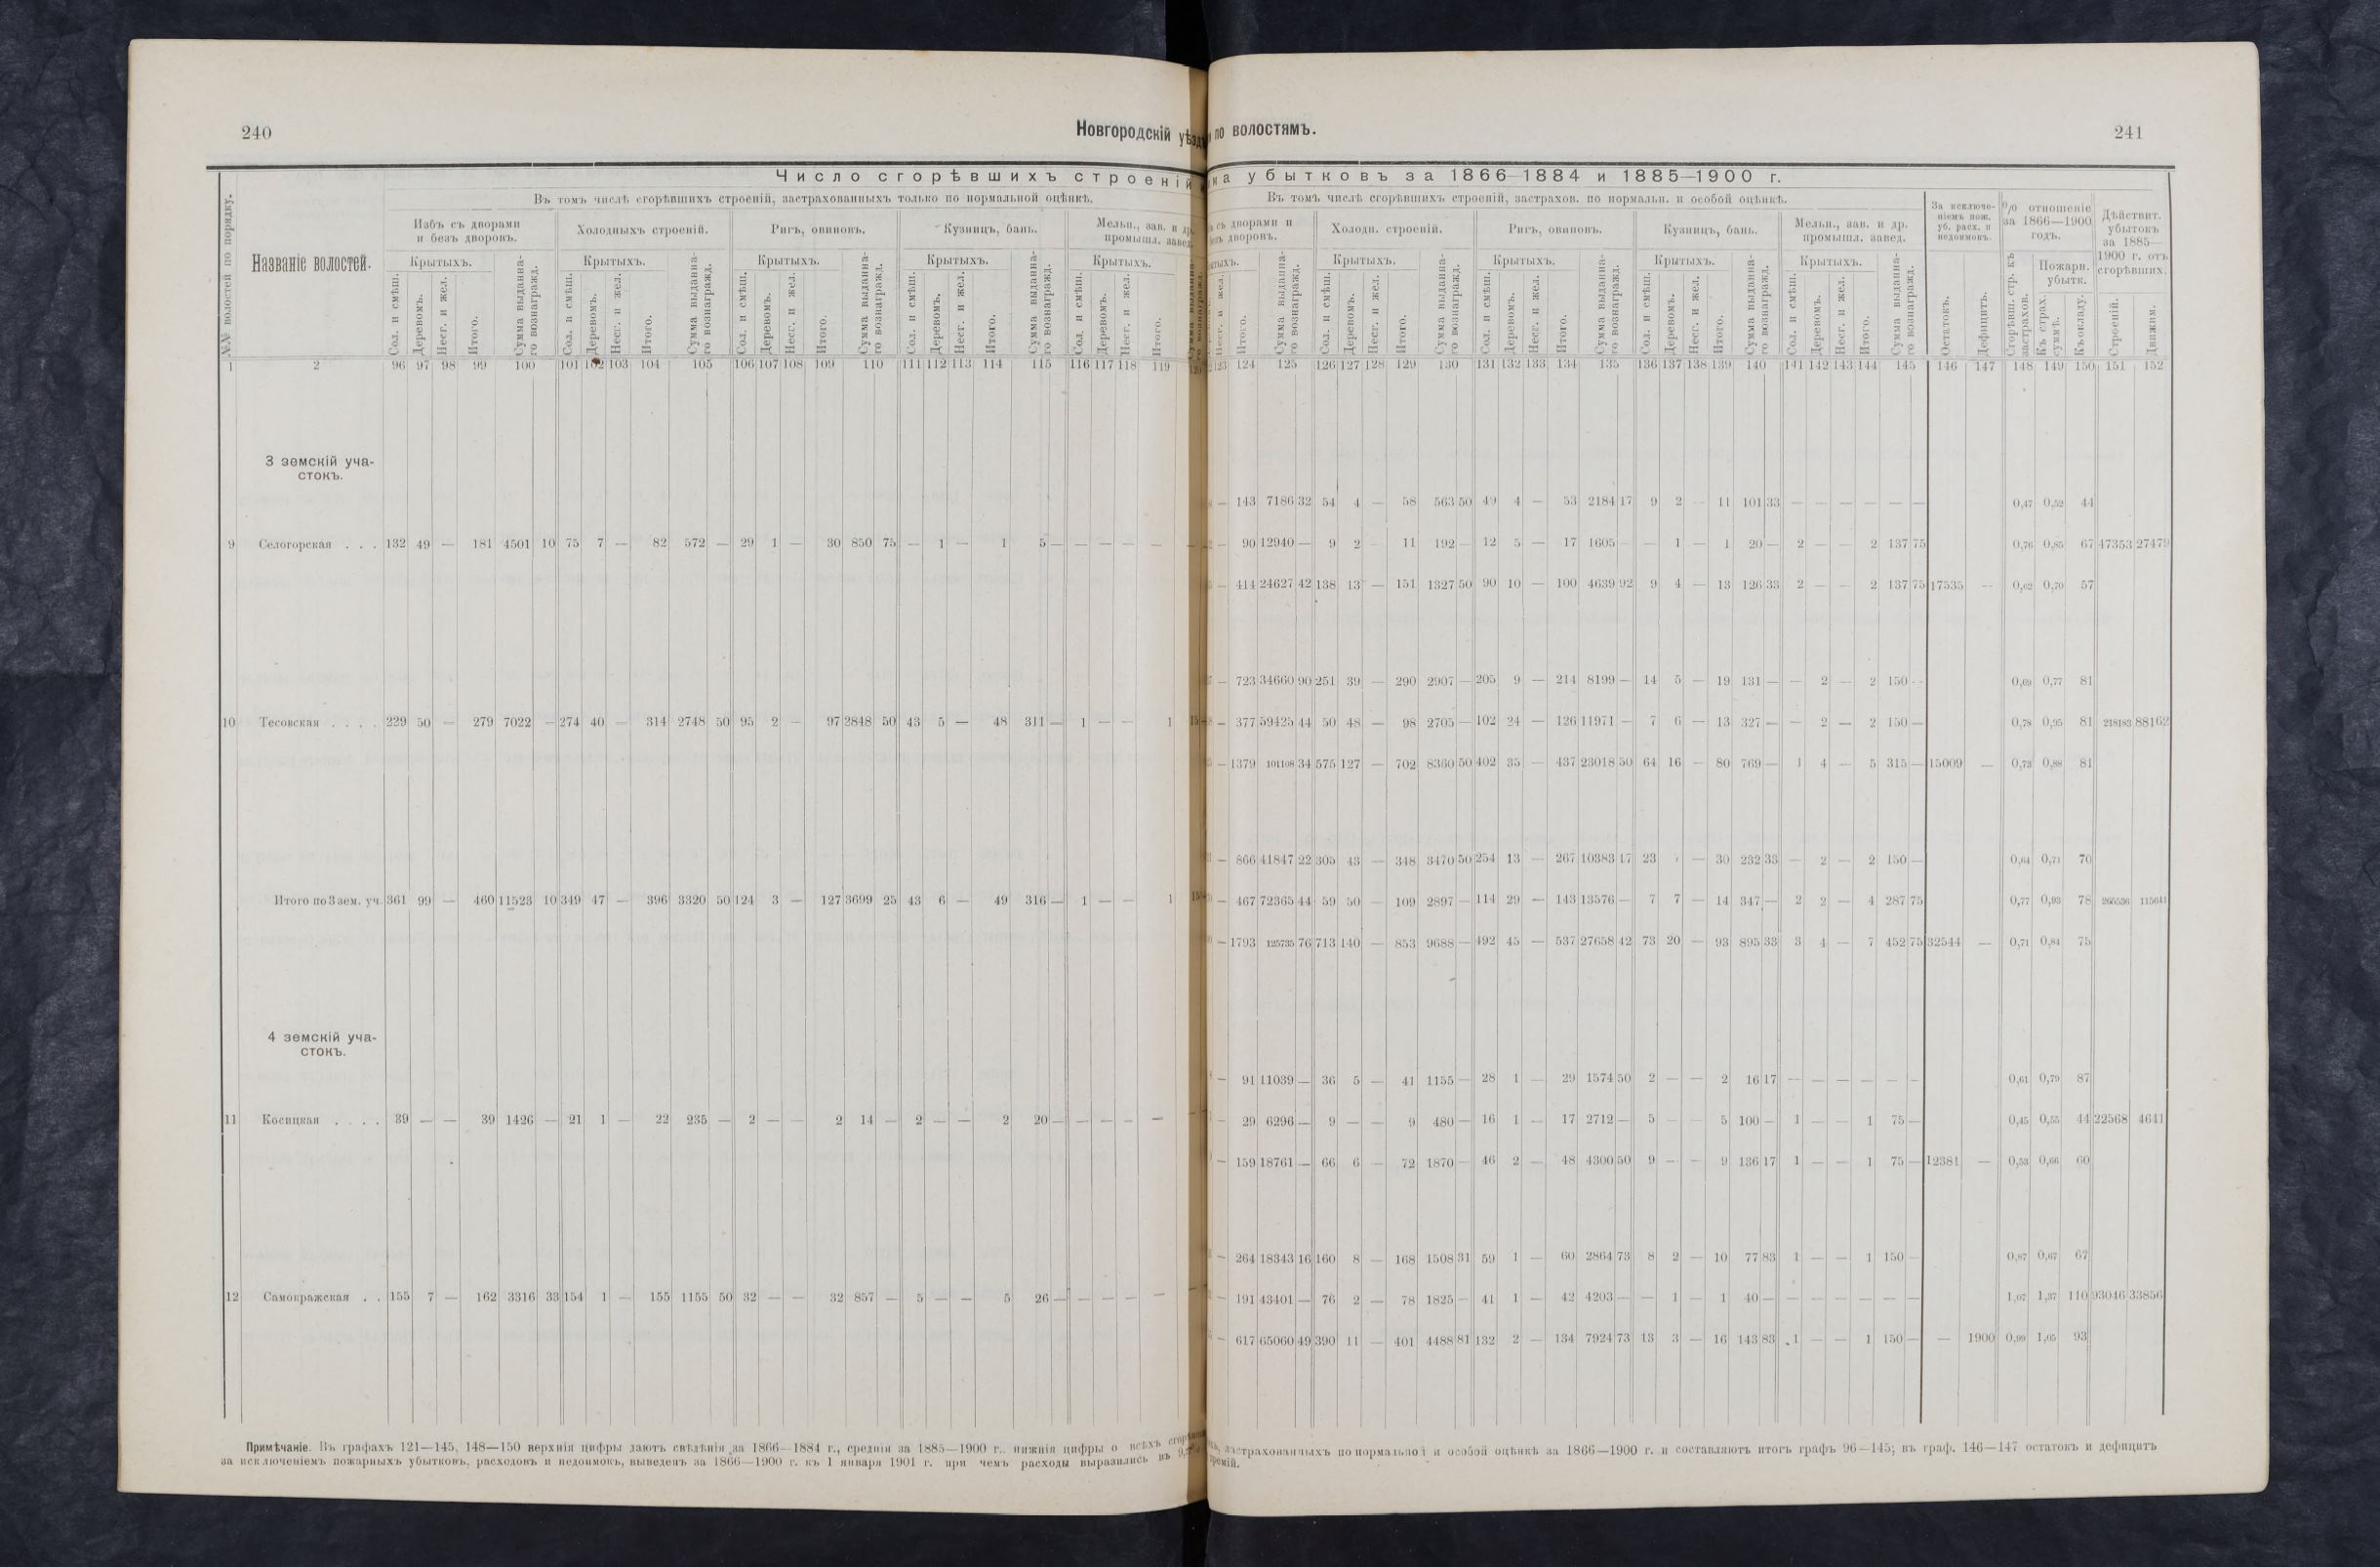 240
Новгородскій уѣздъ по волостямъ.
241
Число сгорѣвшихъ строеній
убытковъ за 1866—1884 и 1885—1900 г.
Въ томъ числѣ сгорѣвшихъ строеній, застрахованныхъ только по нормальной оцѣнкѣ.
Въ томъ числѣ сгорѣвшихъ строеній, застрахов. по нормальн. и особой оцѣнкѣ.
№№ волостей по порядку.
Названіе волостей.
Избъ съ дворами и безъ дворовъ.
Холодныхъ строеній.
Ригъ, овиновъ.
Кузницъ, бань.
Мельн., зав. и др. промышл. завед.
съ дворами и безъ дворовъ.
Холодн. строеній.
Ригъ, овиновъ.
Кузницъ, бань.
Мельн., зав. и др. промышл. завед.
За исключеніемъ пож. уб. расх. и недоимокъ.
% отношеніе за 1866—1900 годъ.
Дѣйствит. убытокъ за 1885—1900 г. отъ сгорѣвшихъ.
Крытыхъ. Крытыхъ. Крытыхъ. Крытыхъ. Крытыхъ. Крытыхъ. Крытыхъ. Крытыхъ. Крытыхъ.
Пожарн. убытк.
Сол. и смѣш. Деревомъ. Несг. и жел. Итого. Сумма выданнаго вознагражд.
Сол. и смѣш. Деревомъ. Несг. и жел. Итого. Сумма выданнаго вознагражд.
Сол. и смѣш. Деревомъ. Несг. и жел. Итого. Сумма выданнаго вознагражд.
Сол. и смѣш. Деревомъ. Несг. и жел. Итого. Сумма выданнаго вознагражд.
Сол. и смѣш. Деревомъ. Несг. и жел. Итого.
Несг. и жел. Итого. Сумма выданнаго вознагражд.
Сол. и смѣш. Деревомъ. Несг. и жел. Итого. Сумма выданнаго вознагражд.
Сол. и смѣш. Деревомъ. Несг. и жел. Итого. Сумма выданнаго вознагражд.
Сол. и смѣш. Деревомъ. Несг. и жел. Итого. Сумма выданнаго вознагражд.
Сол. и смѣш. Деревомъ. Несг. и жел. Итого. Сумма выданнаго вознагражд.
Остатокъ. Дефицитъ. Сгорѣвш. стр. къ застрахов. Къ страх. суммѣ. Къ окладу. Строеній. Движим.
1 2 96 97 98 99 100 101 102 103 104 105 106 107 108 109 110 111 112 113 114 115 116 117 118 119 120
123 124 125 126 127 128 129 130 131 132 133 134 135 136 137 138 139 140 141 142 143 144 145 146 147 148 149 150 151 152
3 земскій уча-
стокъ.
— 143 7186 32 54 4 — 58 563 50 49 4 — 53 2184 17 9 2 — 11 101 33 — — — — — — 0,47 0,52 44
9 Селогорская . . . 132 49 — 181 4501 10 75 7 — 82 572 — 29 1 — 30 850 75 — 1 — 1 5 — — — — —
90 12940 — 9 2 — 11 192 — 12 5 — 17 1605 — — 1 — 1 20 — 2 — — 2 137 75 0,76 0,85 67 47353 27479
— 414 24627 42 138 13 — 151 1327 50 90 10 — 100 4639 92 9 4 — 13 126 33 2 — — 2 137 75 17535 — 0,62 0,70 57
— 723 34660 90 251 39 — 290 2907 — 205 9 — 214 8199 — 14 5 — 19 131 — — 2 — 2 150 — 0,69 0,77 81
10 Тесовская . . . . 229 50 — 279 7022 — 274 40 — 314 2748 50 95 2 — 97 2848 50 43 5 — 48 311 — 1 — — 1 15
— 377 59425 44 50 48 — 98 2705 — 102 24 — 126 11971 — 7 6 — 13 327 — — 2 — 2 150 — 0,78 0,95 81 218183 88162
— 1379 101108 34 575 127 — 702 8360 50 402 35 — 437 23018 50 64 16 — 80 769 — 1 4 — 5 315 — 15009 — 0,73 0,88 81
— 866 41847 22 305 43 — 348 3470 50 254 13 — 267 10383 17 23 — 30 232 33 — 2 — 2 150 — 0,64 0,71 70
Итого по 3 зем. уч. 361 99 — 460 11523 10 349 47 — 396 3320 50 124 3 — 127 3699 25 43 6 — 49 316 — 1 — — 1 15
— 467 72365 44 59 50 — 109 2897 — 114 29 — 143 13576 — 7 7 — 14 347 — 2 2 — 4 287 75 0,77 0,93 78 265536 115641
— 1793 125735 76 713 140 — 853 9688 — 492 45 — 537 27658 42 73 20 — 93 895 33 3 4 — 7 452 75 32544 — 0,71 0,84 75
4 земскій уча-
стокъ.
— 91 11039 — 36 5 — 41 1155 — 28 1 — 29 1574 50 2 — — 2 16 17 — — — — — — 0,61 0,79 87
11 Косицкая . . . . 39 — — 39 1426 — 21 1 — 22 235 — 2 — — 2 14 — 2 — — 2 20 — — — — —
— 29 6296 — 9 — — 9 480 — 16 1 — 17 2712 — 5 — — 5 100 — 1 — — 1 75 — 0,45 0,55 44 22568 4641
— 159 18761 — 66 6 — 72 1870 — 46 2 — 48 4300 50 9 — — 9 136 17 1 — — 1 75 — 12381 — 0,53 0,66 60
— 264 18343 16 160 8 — 168 1508 31 59 1 — 60 2864 73 8 2 — 10 77 83 1 — — 1 150 — 0,87 0,67 67
12 Самокражская . . 155 7 — 162 3316 33 154 1 — 155 1155 50 32 — — 32 857 — 5 — — 5 26 — — — — —
— 191 43401 — 76 2 — 78 1825 — 41 1 — 42 4203 — — 1 — 1 40 — — — — — — — 1,07 1,37 110 93046 33856
— 617 65060 49 390 11 — 401 4488 81 132 2 — 134 7924 73 13 3 — 16 143 83 1 — — 1 150 — — 1900 0,99 1,05 93
Примѣчаніе. Въ графахъ 121—145, 148—150 верхнія цифры даютъ свѣдѣнія за 1866—1884 г., среднія за 1885—1900 г., нижнія цифры о всѣхъ застрахованныхъ по нормальной и особой оцѣнкѣ за 1866—1900 г. и составляютъ итогъ графъ 96—145; въ граф. 146—147 остатокъ и дефицитъ
за исключеніемъ пожарныхъ убытковъ, расходовъ и недоимокъ, выведенъ за 1866—1900 г. къ 1 января 1901 г. при чемъ расходы выразились въ премій.